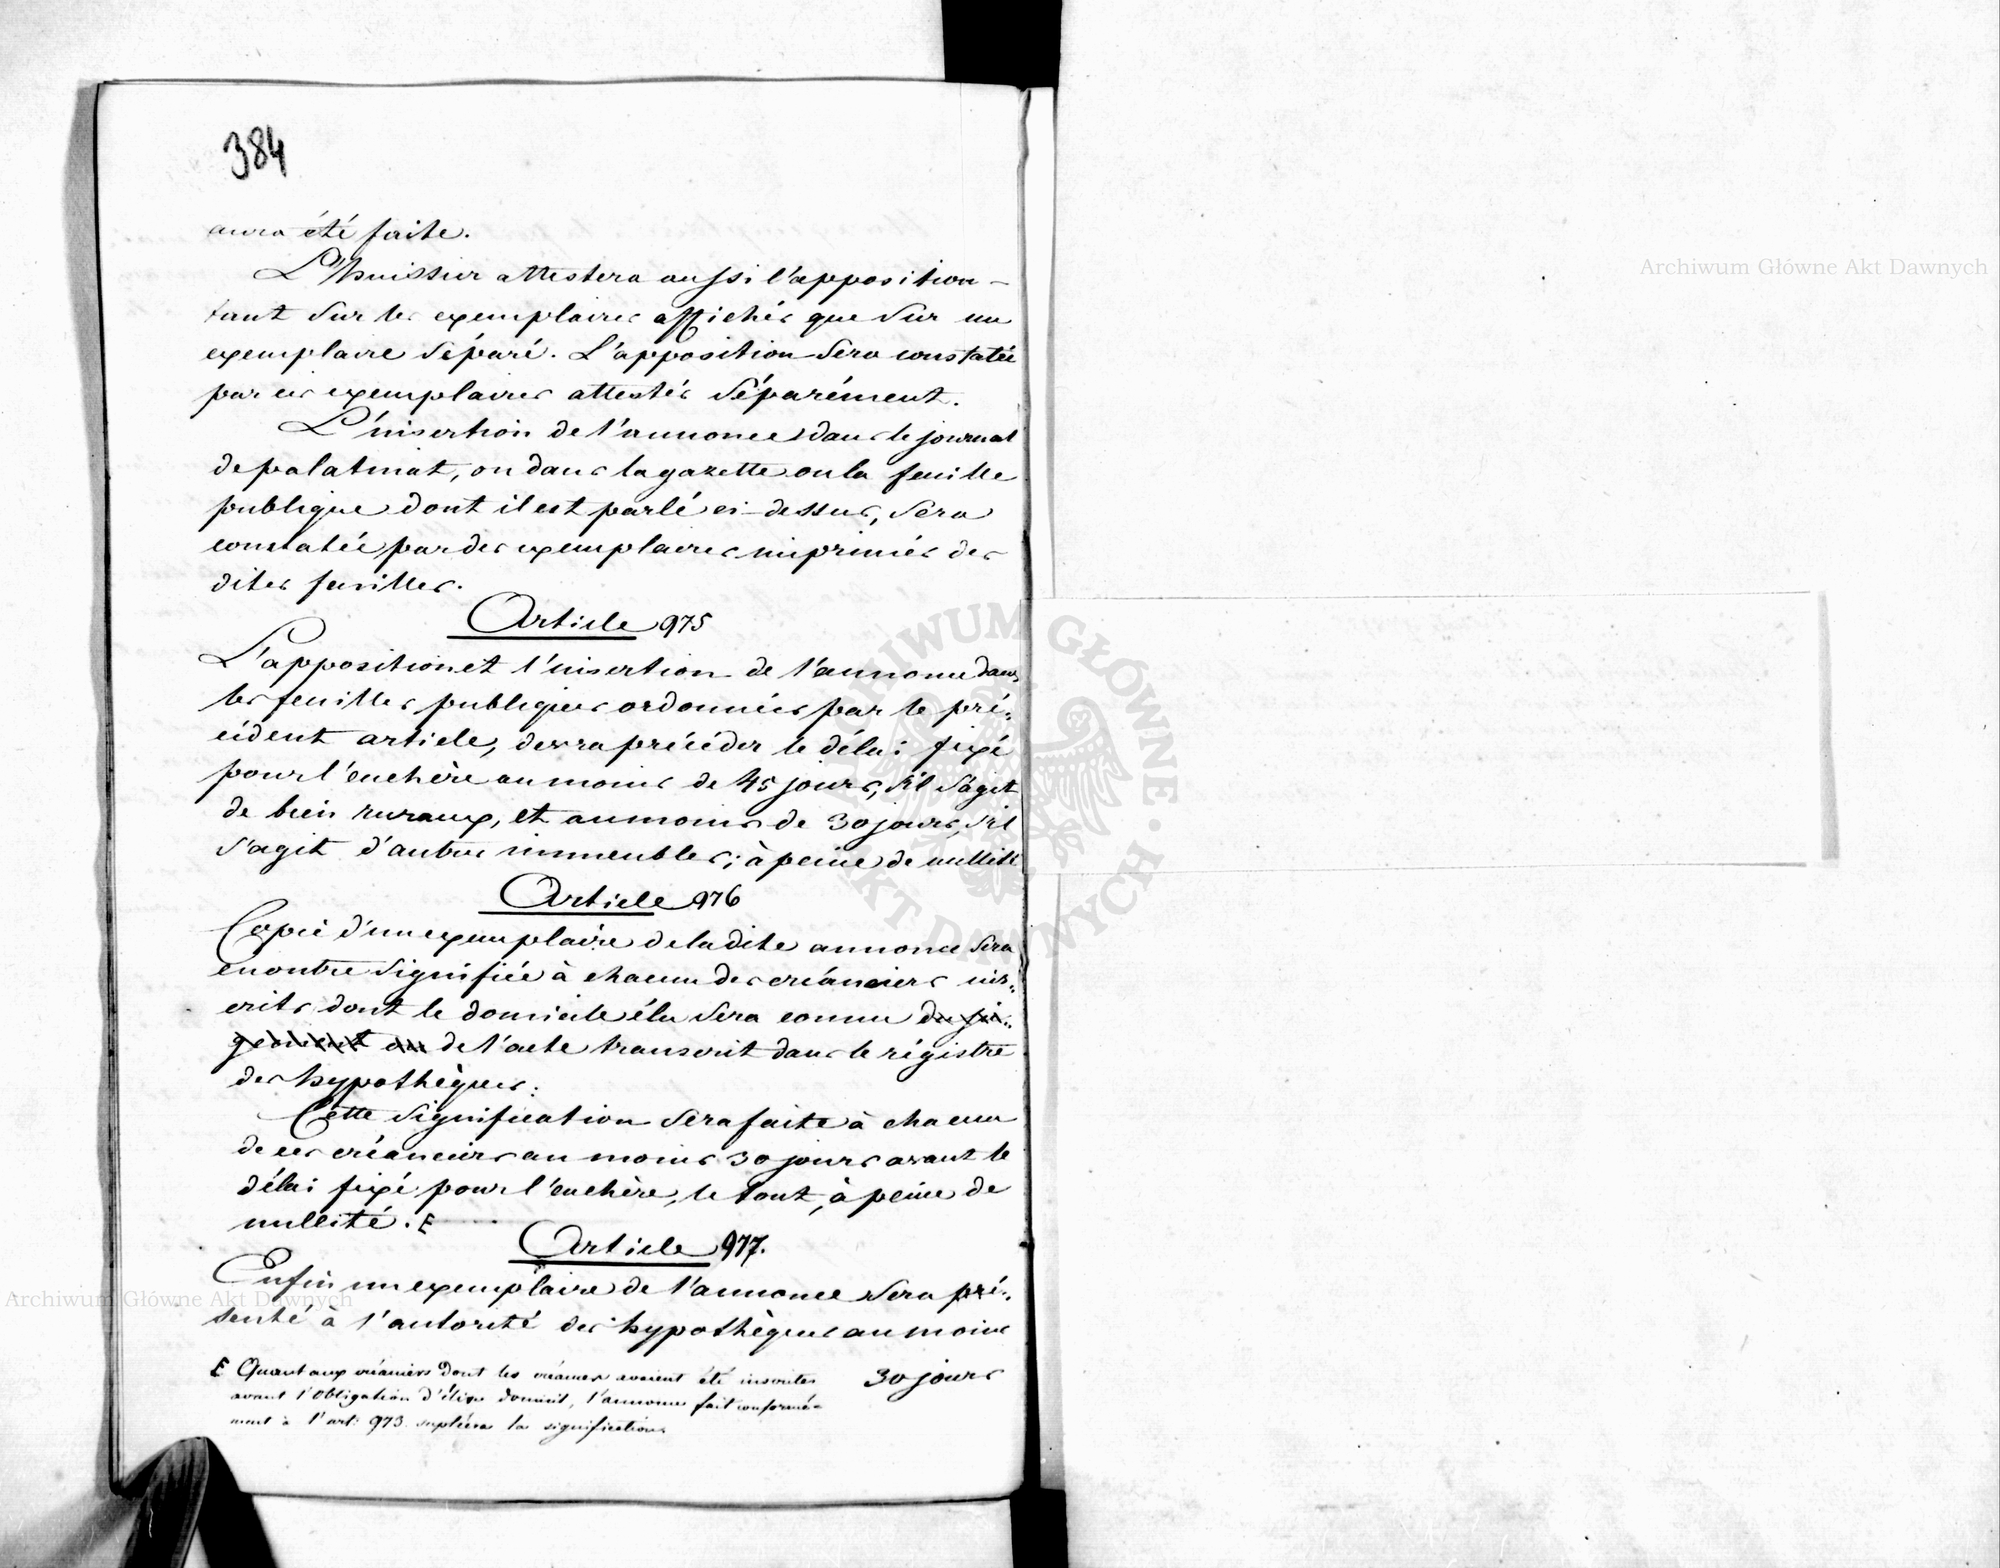 384
aura été faite.
L'huissier attestera aussi l'apposition
tant sur les exemplaires affichés que sur un
exemplaire séparé. L'apposition sera constatée
par ces exemplaires attestés séparément.
L'insertion de l'annonce dans le journal
de palatinat, ou dans la gazette ou la feuille
publique dont il est parlé ci-dessus, sera
constatée par des exemplaires imprimés des
dites feuilles.
Article 975
L'apposition et l'insertion de l'annonce dans
les feuilles publiques ordonnées par le pré-
cédent article, devra précéder le délai fixé
pour l'enchère au moins de 45 jours, s'il s'agit
de bien ruraux, et au moins de 30 jours, s'il
s'agit d'autres immeubles; à peine de nullité
Article 976
Copie d'un exemplaire de la dite annonce sera
en outre signifiée à chacun des créanciers ins-
crits dont le domicile élu sera connu du ju-
gement ou de l'acte transcrit dans le régistre
des hypothèques.
Cette signification sera faite à chacun
de ces créanciers au moins 30 jours avant le
délai fixé pour l'enchère, le tout, à peine de
nullité. E
Article 977.
Enfin un exemplaire de l'annonce sera pré-
senté à l'autorité des hypothèques au moins
30 jours
E Quant aux créanciers dont les créances avaient été inscrites
avant l'obligation d'élire domicil, l'annonce fait conformé-
ment à l'art: 973. supléera la signification.
Archiwum Główne Akt Dawnych
Archiwum Główne Akt Dawnych
ARCHIWUM GŁÓWNE AKT DAWNYCH